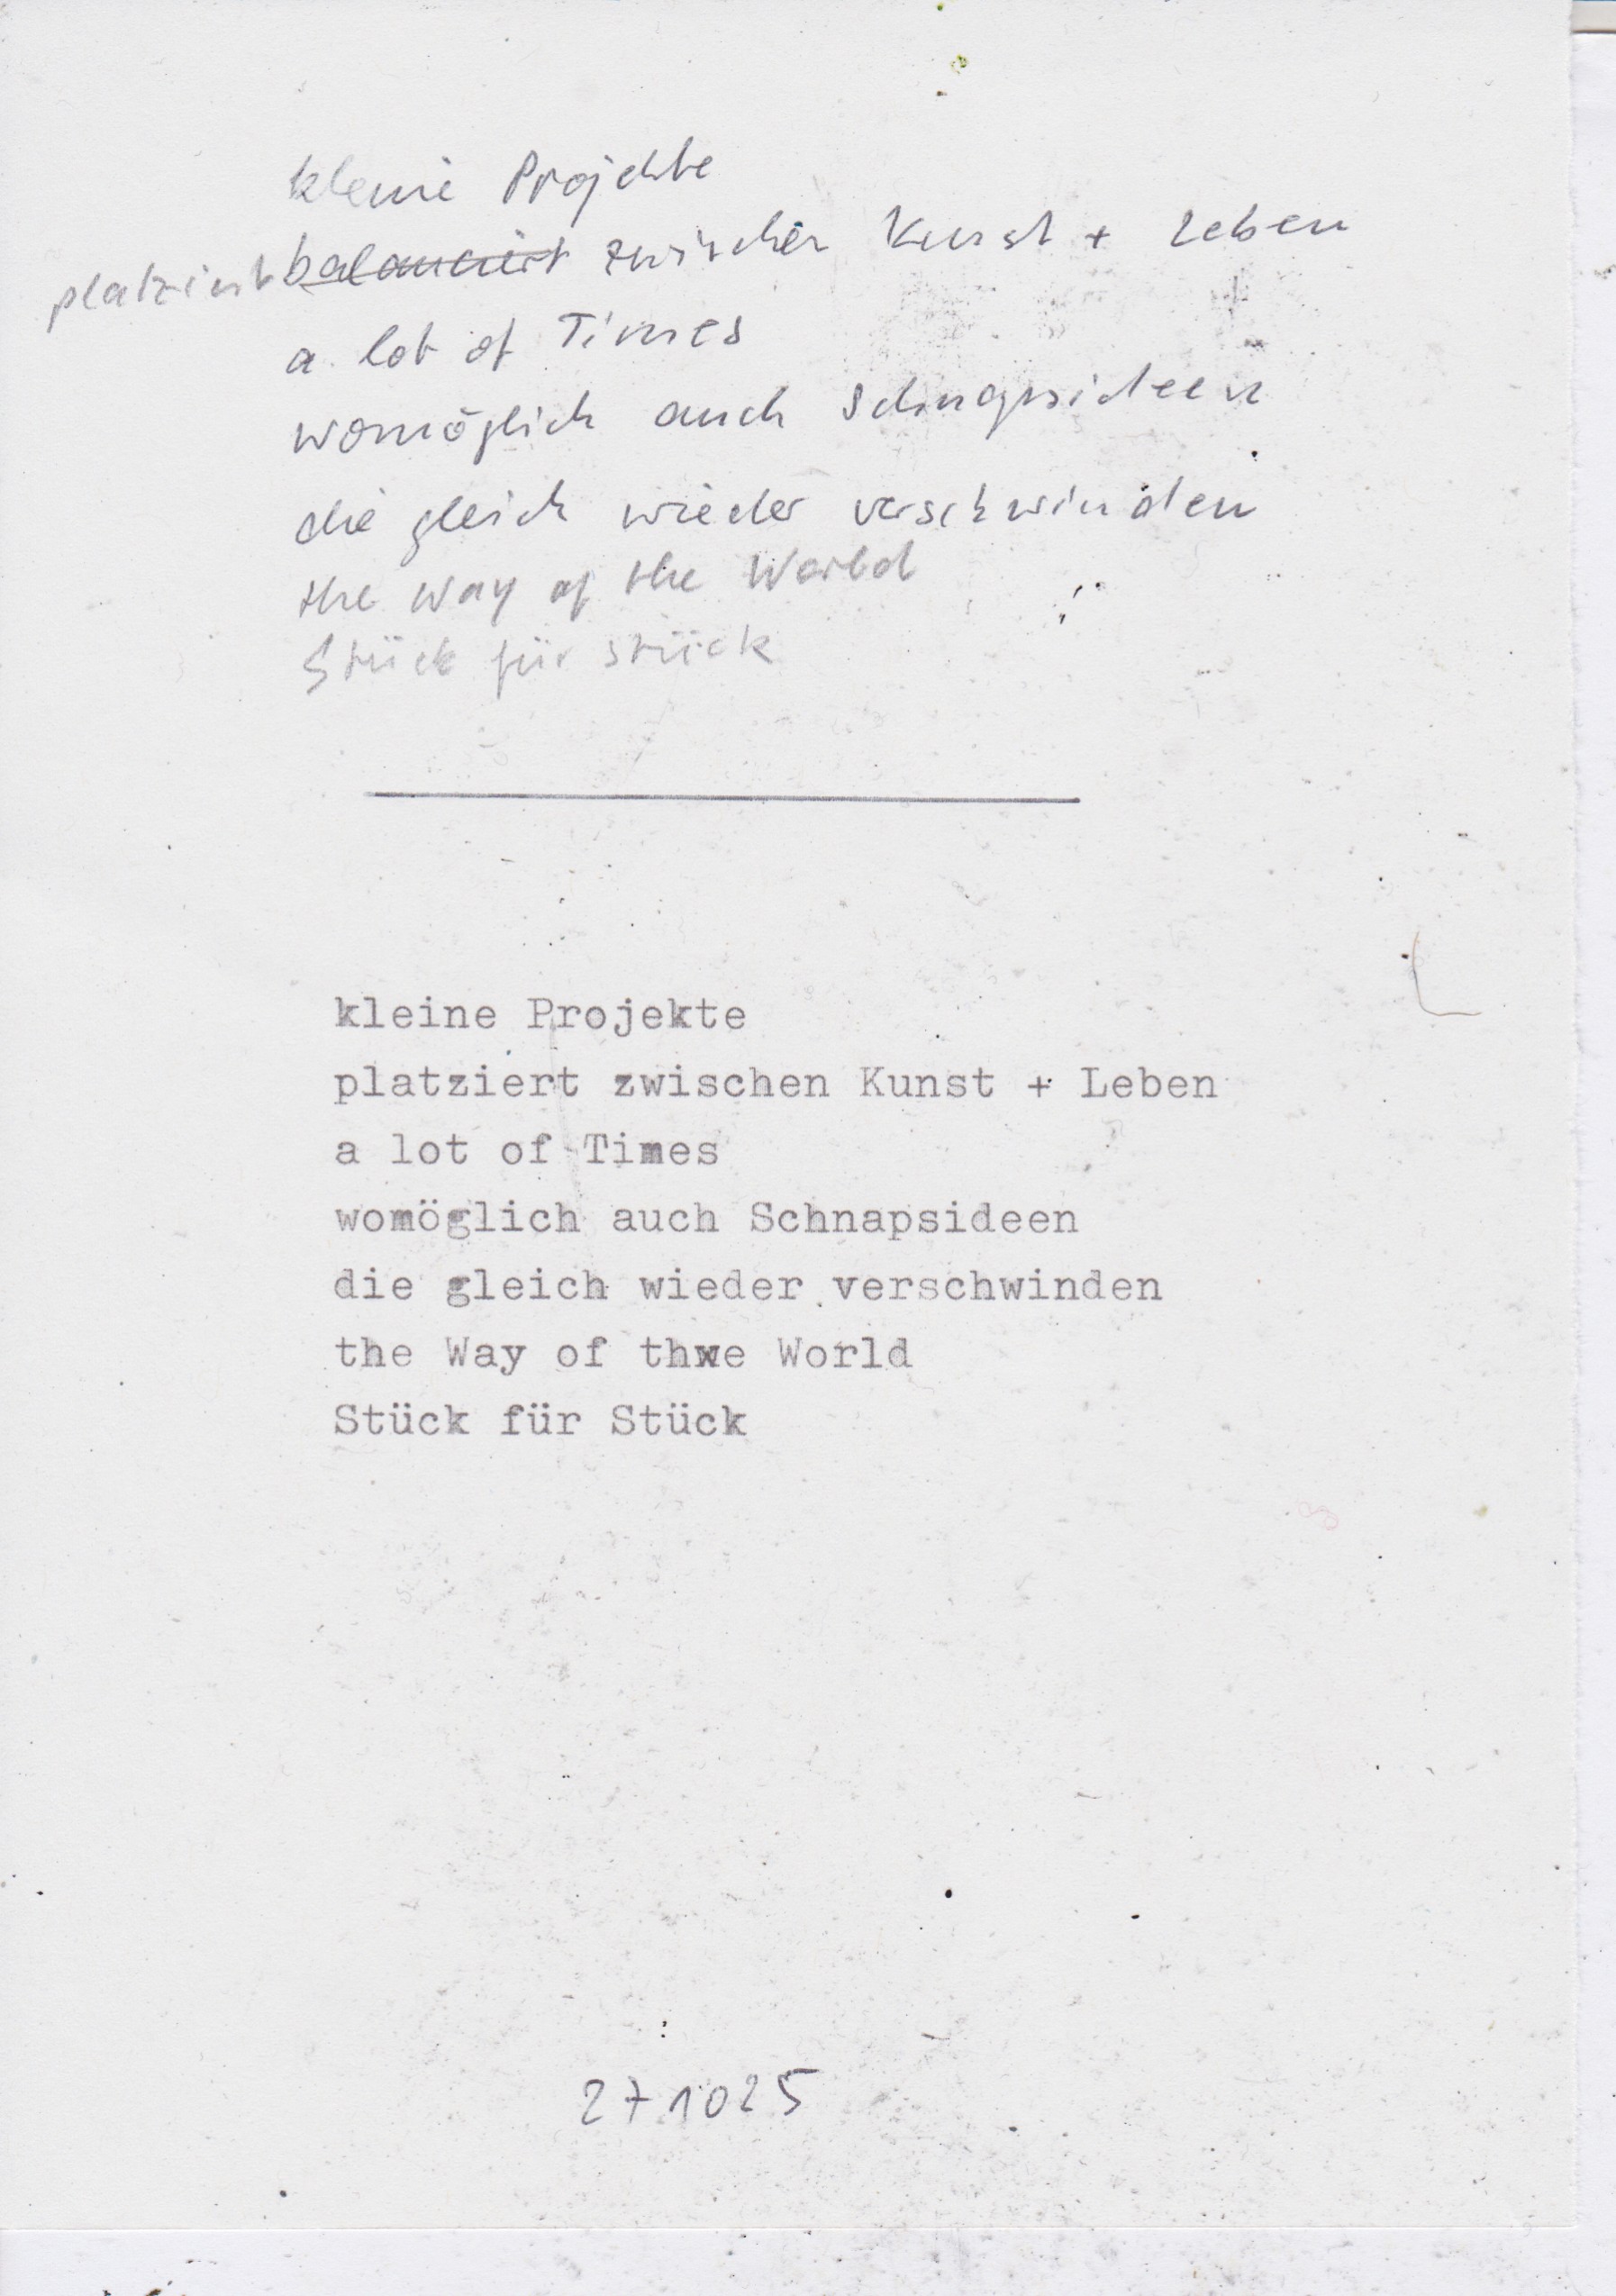 kleine Projekte
platziert balanciert zwischen Kunst + Leben
a lot of Times
womöglich auch Schnapsideen
die gleich wieder verschwinden
the Way of the World
Stück für Stück
kleine Projekte
platziert zwischen Kunst + Leben
a lot of Times
womöglich auch Schnapsideen
die gleich wieder verschwinden
the Way of thwe World
Stück für Stück
271025